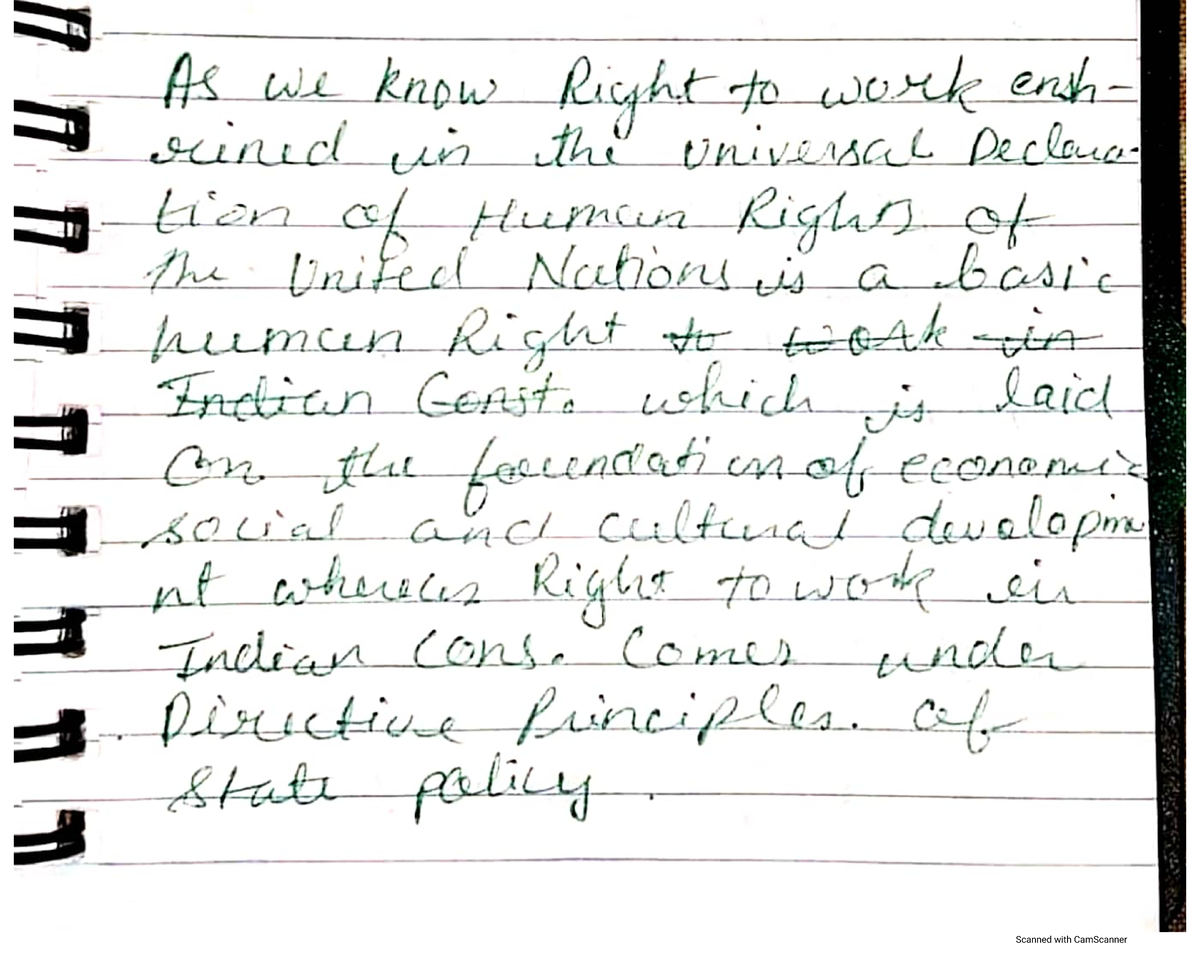 As we know Right to work ensh-
rined in the Universal Declara-
tion of Human Rights of
the United Nations is a basic
human Right to work in
Indian Const. which is laid
on the foundation of economic
social and cultural developme
nt whereas Right to work in
Indian Cons. Comes under
Directive Principles. of
State policy.
Scanned with CamScanner